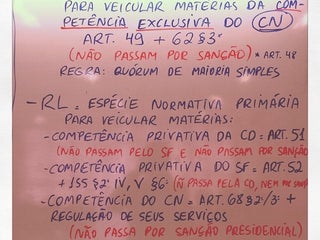 PARA VEICULAR MATÉRIAS DA COM-
PETÊNCIA EXCLUSIVA DO CN
ART. 49 + 62 § 3º
(NÃO PASSAM POR SANÇÃO) * ART. 48
REGRA: QUÓRUM DE MAIORIA SIMPLES
- RL = ESPÉCIE NORMATIVA PRIMÁRIA
PARA VEICULAR MATÉRIAS:
- COMPETÊNCIA PRIVATIVA DA CD = ART. 51
(NÃO PASSAM PELO SF E NÃO PASSAM POR SANÇÃO
- COMPETÊNCIA PRIVATIVA DO SF = ART. 52
+ 155 § 2º IV, V § 6º (Ñ PASSA PELA CD, NEM
- COMPETÊNCIA DO CN = ART. 68 § 2º/3º +
REGULAÇÃO DE SEUS SERVIÇOS
(NÃO PASSA POR SANÇÃO PRESIDENCIAL)